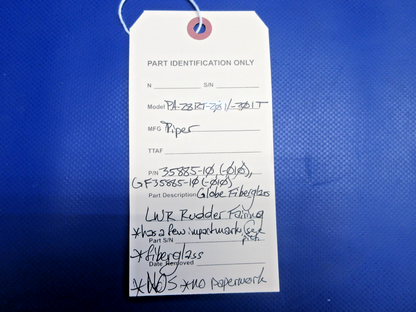 PART IDENTIFICATION ONLY
N S/N
Model PA-28RT-201/-201T
MFG Piper
TTAF
P/N 35885-10 (-010),
GF35885-10 (-010)
Part Description Globe Fiberglass
LWR Rudder Fairing
*has a few impact marks (see
Part S/N pics
*fiberglass
Date Removed
*NOS *no paperwork